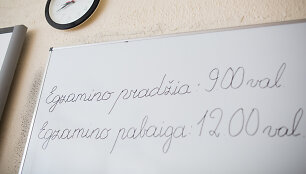 Egzamino pradžia: 9.00 val.
Egzamino pabaiga: 12.00 val.